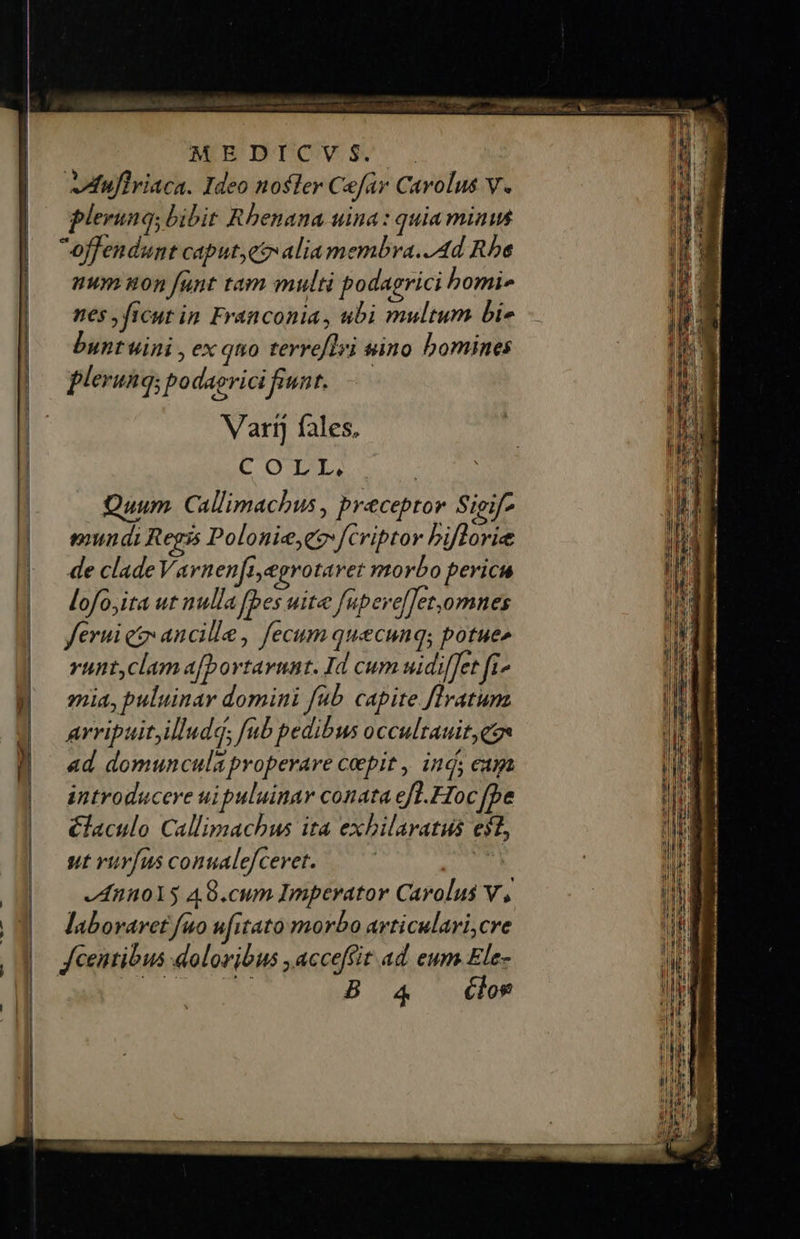 MEDICVS.
Auſtriaca. Ideo noſter Cæſar Carolus V.
plerunq; bibit Rhenana uina: quia minus
offendunt caput, & alia membra. Ad Rhe
num non ſunt tam multi podagrici homi-
nes, ſicut in Franconia, ubi multum bi-
bunt uini, ex quo terreſtri uino homines
plerunq; podagrici fiunt.
Varij ſales.
COLL.
Quum Callimachus, præceptor Sigiſ-
mundi Regis Poloniæ, & ſcriptor hiſtoriæ
de clade Varnenſi, ægrotaret morbo pericu
loſo, ita ut nulla ſpes uitæ ſupereſſet, omnes
ſerui & ancillæ, ſecum quæcunq; potue-
runt, clam aſportarunt. Id cum uidiſſet ſi-
mia, puluinar domini ſub capite ſtratum
arripuit, illudq́; ſub pedibus occultauit, &
ad domunculã properare cœpit, inq́; eam
introducere ui puluinar conata eſt. Hoc ſpe
ctaculo Callimachus ita exhilaratus eſt,
ut rurſus conualeſceret.
Anno 1548. cum Imperator Carolus V.
laboraret ſuo uſitato morbo articulari, cre
ſcentibus doloribus, acceſsit ad eum Ele-
B 4 cto-